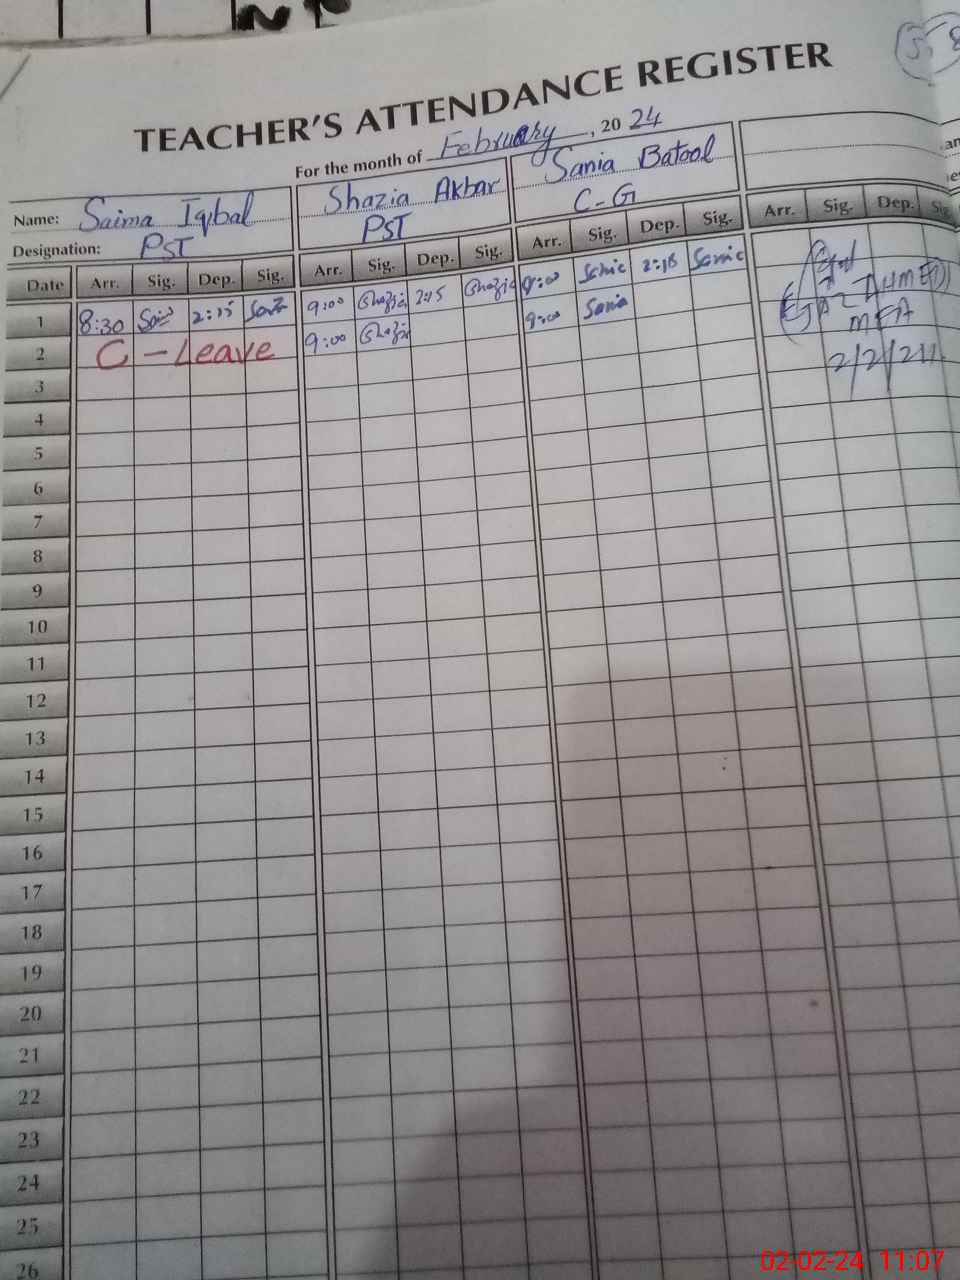 TEACHER'S ATTENDANCE REGISTER
For the month of February, 2024
Name: Saima Iqbal Shazia Akbar Sania Batool
Designation: PST PST C-G
Date Arr. Sig. Dep. Sig. Arr. Sig. Dep. Sig. Arr. Sig. Dep. Sig. Arr. Sig. Dep. Sig
1 8:30 2:15 9:00 2:15 9:00 Sania 2:15 Sania
2 C-Leave 9:00 9:00 Sania
MEA
2/2/24
3
4
5
6
7
8
9
10
11
12
13
14
15
16
17
18
19
20
21
22
23
24
25
26
02-02-24 11:07